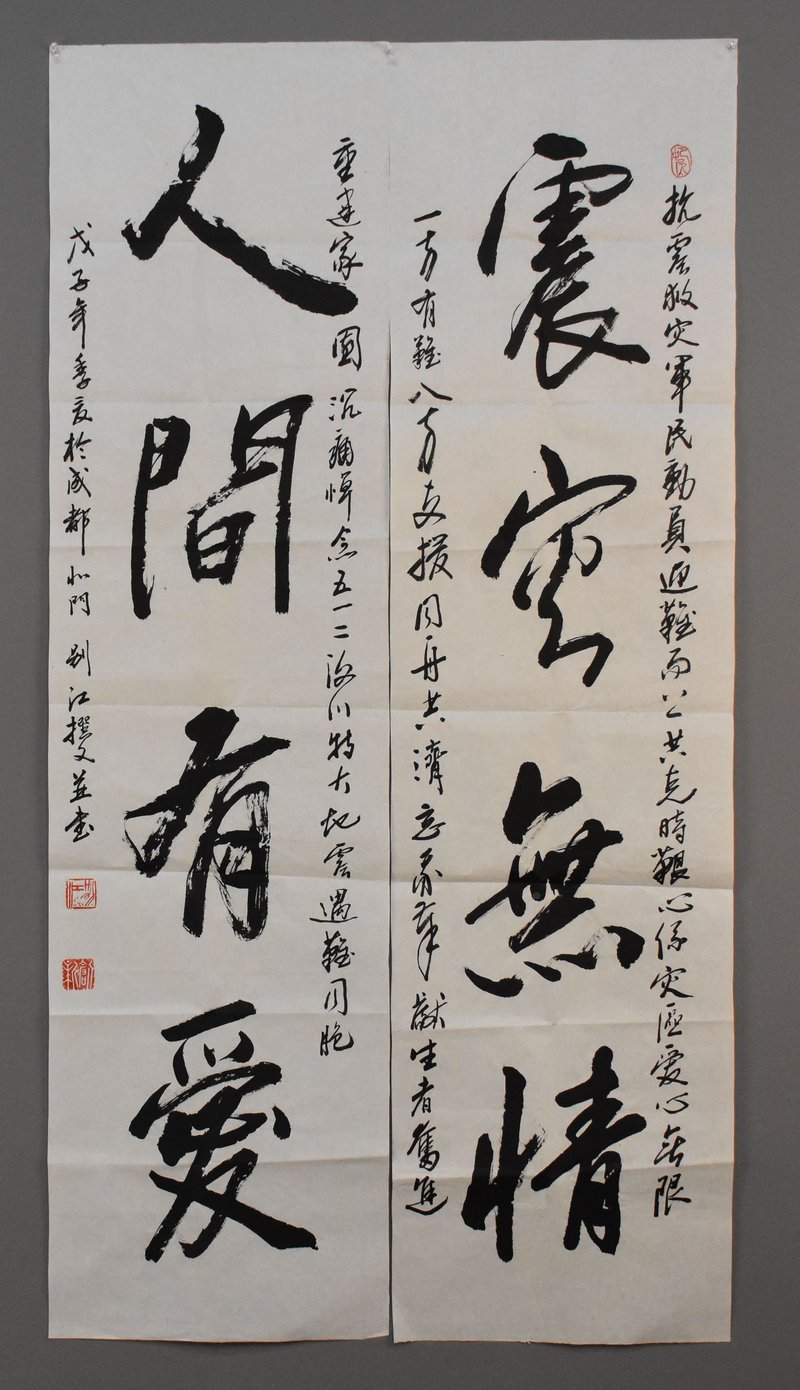 抗震救灾軍民動員迎難而上共克時艱心係灾區愛心無限
震灾無情
一方有難八方支援同舟共濟忘我奉獻生者奮進
重建家園沉痛悼念五一二汶川特大地震遇難同胞
人間有愛
戊子年季夏於成都北門 别江撰文並書